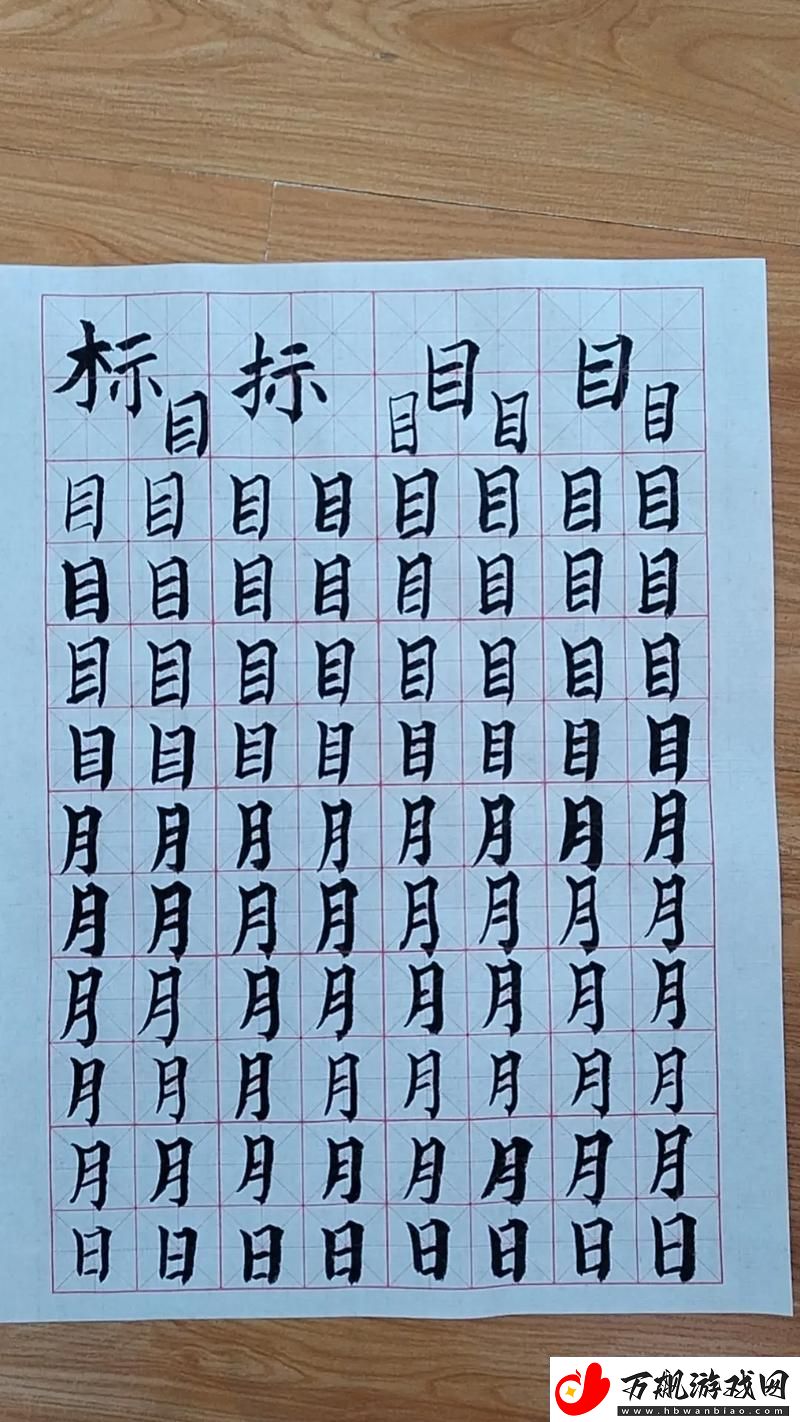 标 标 目 目
目 目 目 目
目 目 目 目 目 目 目 目
目 目 目 目 目 目 目 目
目 目 目 目 目 目 目 目
目 目 目 目 目 目 目 目
月 月 月 月 月 月 月 月
月 月 月 月 月 月 月 月
月 月 月 月 月 月 月 月
月 月 月 月 月 月 月 月
月 月 月 月 月 月 月 月
日 日 日 日 日 日 日 日
万飙游戏网
www.hbwanbiao.com